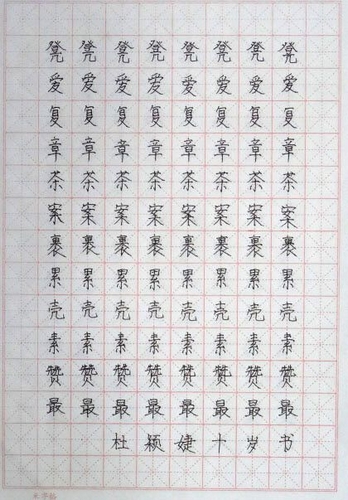 凳凳凳凳凳凳凳凳
爱爱爱爱爱爱爱爱
复复复复复复复复
章章章章章章章章
茶茶茶茶茶茶茶茶
案案案案案案案案
裹裹裹裹裹裹裹裹
累累累累累累累累
壳壳壳壳壳壳壳壳
素素素素素素素素
赞赞赞赞赞赞赞赞
最最最最最最最最
杜颖婕十岁书